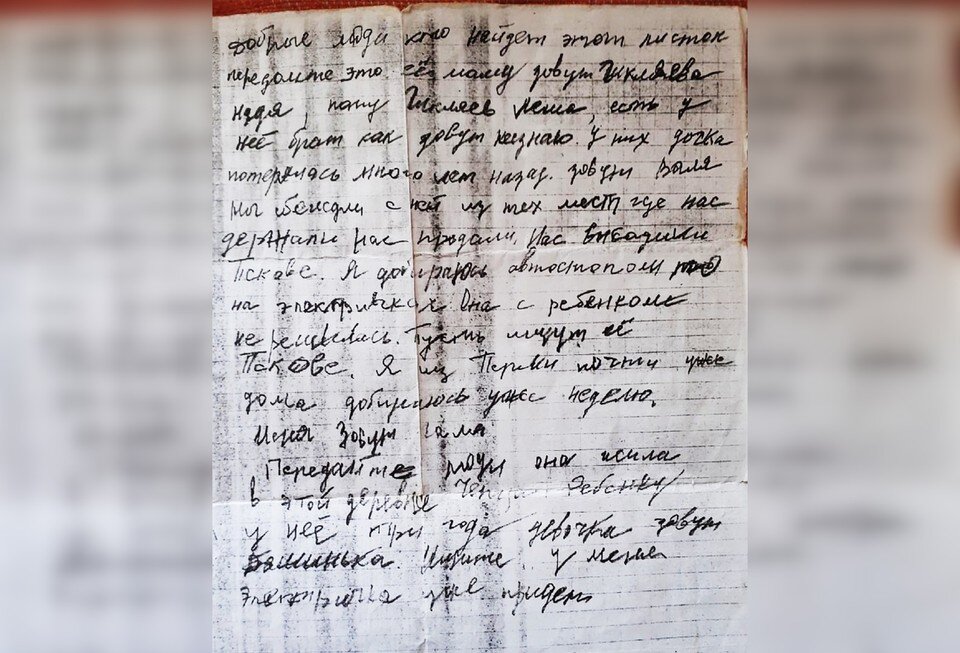 Добрые люди кто найдет этот листок
передайте это её маму зовут Шкляева
Надя, папу Шкляев Леша, есть у
неё брат как зовут незнаю. У них дочка
потерялась много лет назад. зовут Валя
мы бежали с ней из тех мест где нас
держали нас продали. Нас высадили
Пскаве. Я добираюсь автостопом то
на электричках Она с ребенкоме
не решилась. Пусть ищут её
Пскове. Я из Перми почти уже
дома добираюсь уже неделю.
Меня Зовут Сама
Передайте люди она жила
в этой деревне ребенку
у неё три года девочка зовут
Башинька. Ищите. у меня
электричка уже придет